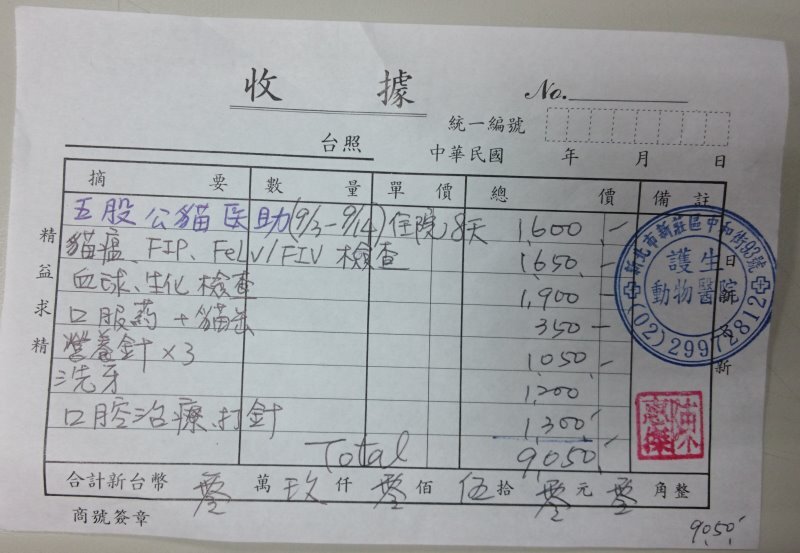 收 據
No.
統一編號
台照
中華民國 年 月 日
摘 要 數 量 單 價 總 價 備 註
五股公貓医助(9/3-9/14)住院8天 1,600.-
貓瘟、FIP、FeLV/FIV 檢查 1,650.-
血球、生化檢查 1,900 -
口服葯+貓缶 350 -
營養針×3 1,050.-
洗牙 1,200
口腔治療、打針 1,300.-
Total 9,050.-
合計新台幣 零 萬 玖 仟 零 佰 伍 拾 零 元 零 角整
商號簽章
9050.-
精益求精
日新又新
新北市新莊區中和街93號
護生
動物醫院
(02)29972812